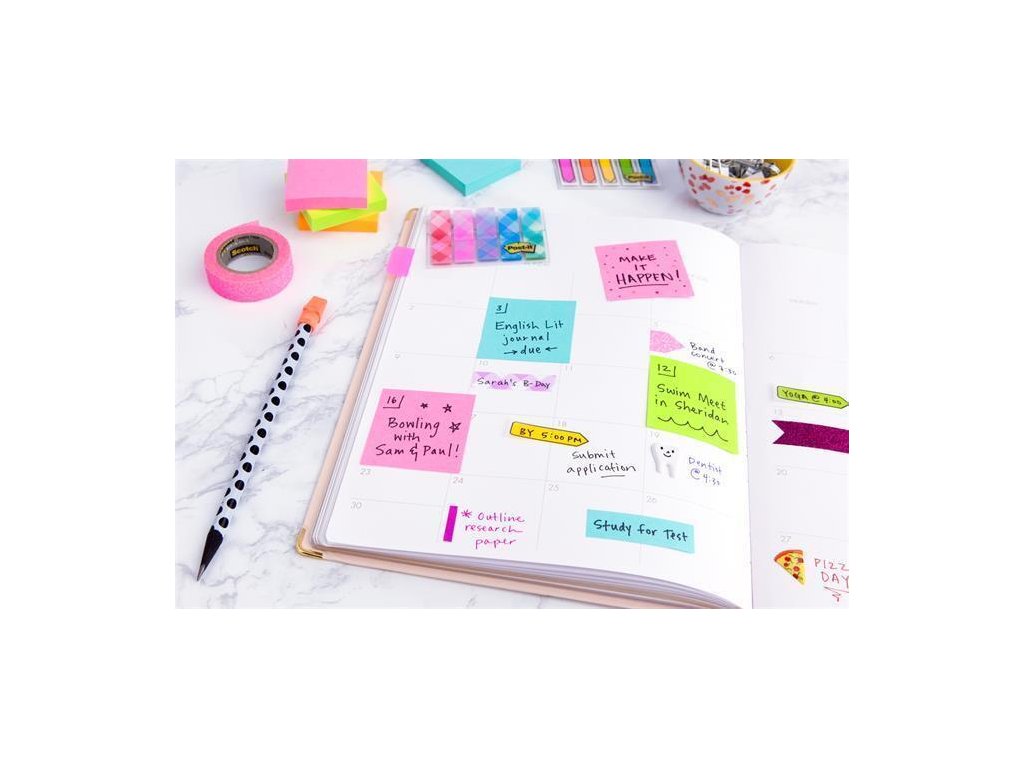 Scotch
Post-it
Post-it
MAKE
IT
HAPPEN!
2
3
English Lit
journal
→due←
5
Band
Concert
@ 7:30
6
9
10
11
12
Sarah's B-Day
Swim Meet
in Sheridan
YOGA @ 4:00
13
16
Bowling
with
Sam & Paul!
BY 5:00PM
18
Submit
application
19
Dentist
@ 4:30
20
23
24
25
26
27
30
* Outline
research
paper
Study for Test
PIZZ
DAY